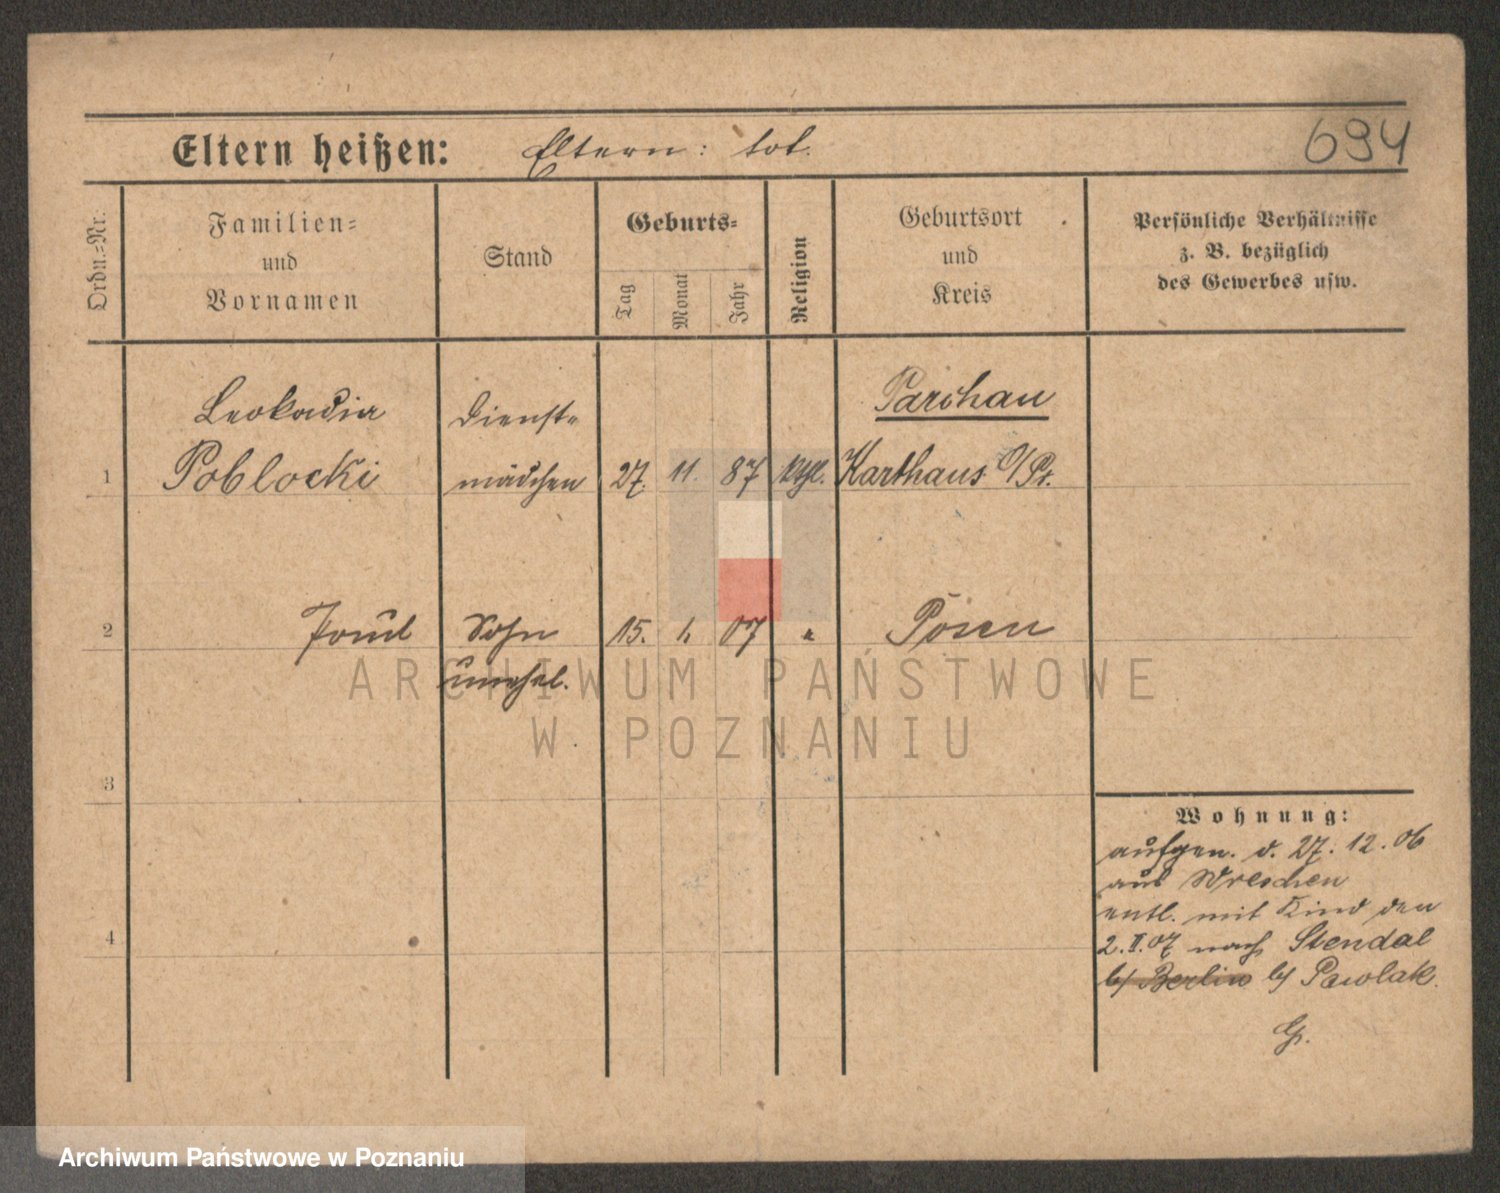 Eltern heißen: Eltern: tot. 694
Ordn.=Nr:
Familien=
und
Vornamen
Stand
Geburts=
Tag
Monat
Jahr
Religion
Geburtsort
und
Kreis
Persönliche Verhältnisse
z. B. bezüglich
des Gewerbes usw.
Leokadia Dienst= Parchau
1 Poblocki mädchen 27. 11. 87 kthl. Karthaus /Pr.
2 Sohn 15. 1. 07 " Posen
unehel.
3
Wohnung:
aufgen. d. 27. 12. 06
aus Wreschen
entl. mit Kind den
4
2. II. 07 nach Stendal
b/ Berlin b/ Pawolak.
G.
ARCHIWUM PAŃSTWOWE
W POZNANIU
Archiwum Państwowe w Poznaniu